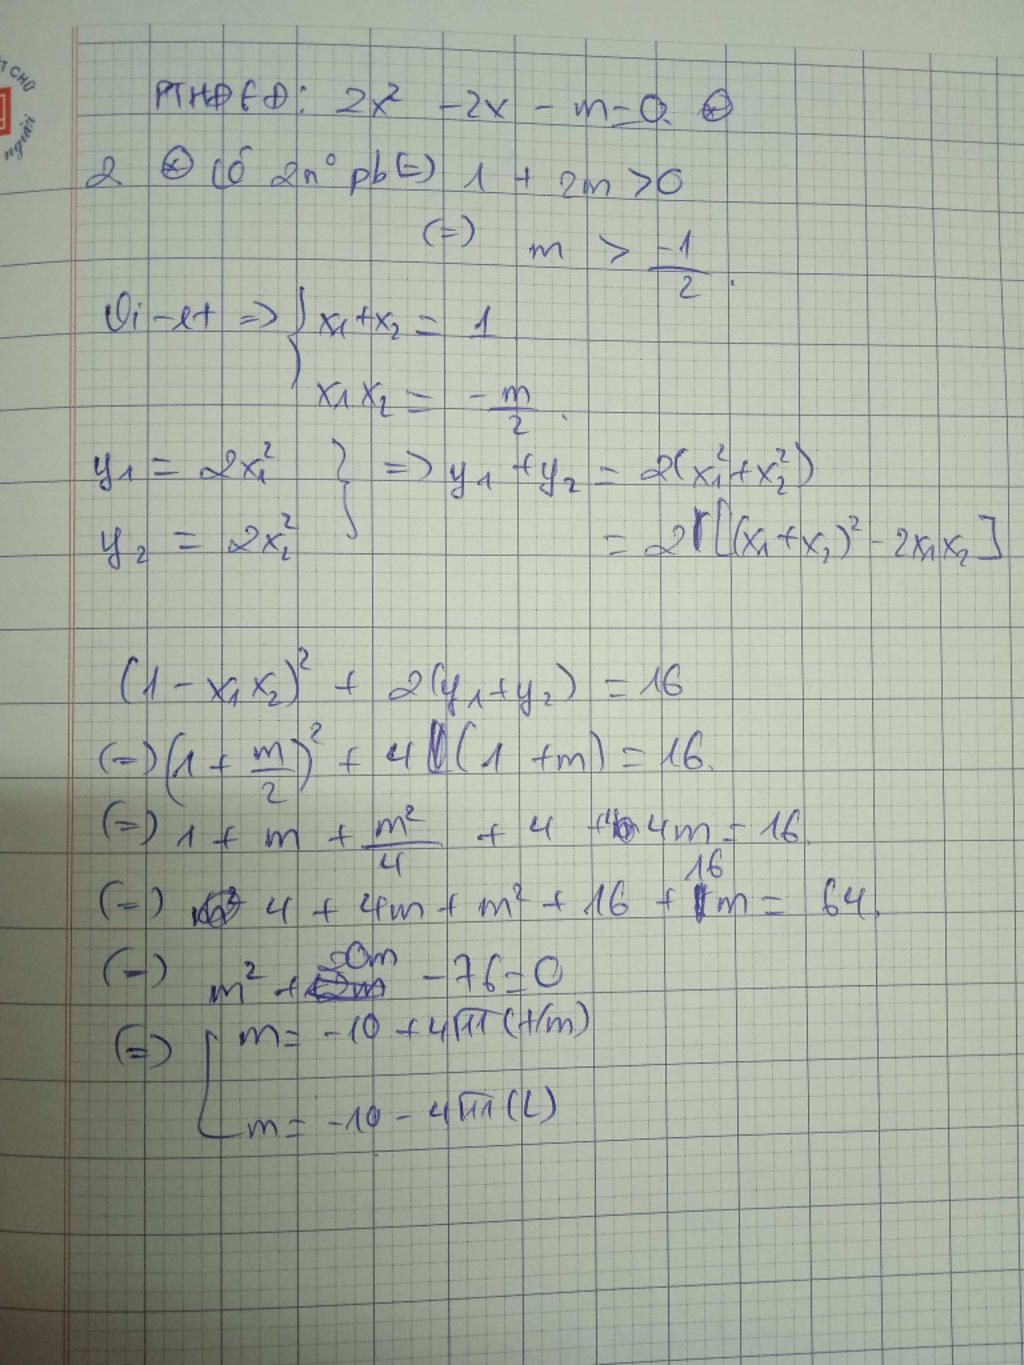 T CHỮ
người
PTHĐGĐ: 2x² - 2x - m = 0. ⊛
2 ⊛ có 2n° pb (=) 1 + 2m > 0
(=) m > -1/2.
Vi-et => { x₁ + x₂ = 1
x₁x₂ = -m/2.
y₁ = 2x₁² } => y₁ + y₂ = 2(x₁² + x₂²)
y₂ = 2x₂² = 2[(x₁ + x₂)² - 2x₁x₂]
(1 - x₁x₂)² + 2(y₁ + y₂) = 16
(=) (1 + m/2)² + 4(1 + m) = 16.
(=) 1 + m + m²/4 + 4 + 4m = 16.
(=) 4 + 4m + m² + 16 + 16m = 64.
(=) m² + 20m - 76 = 0
(=) [ m = -10 + 4√11 (t/m)
m = -10 - 4√11 (L)